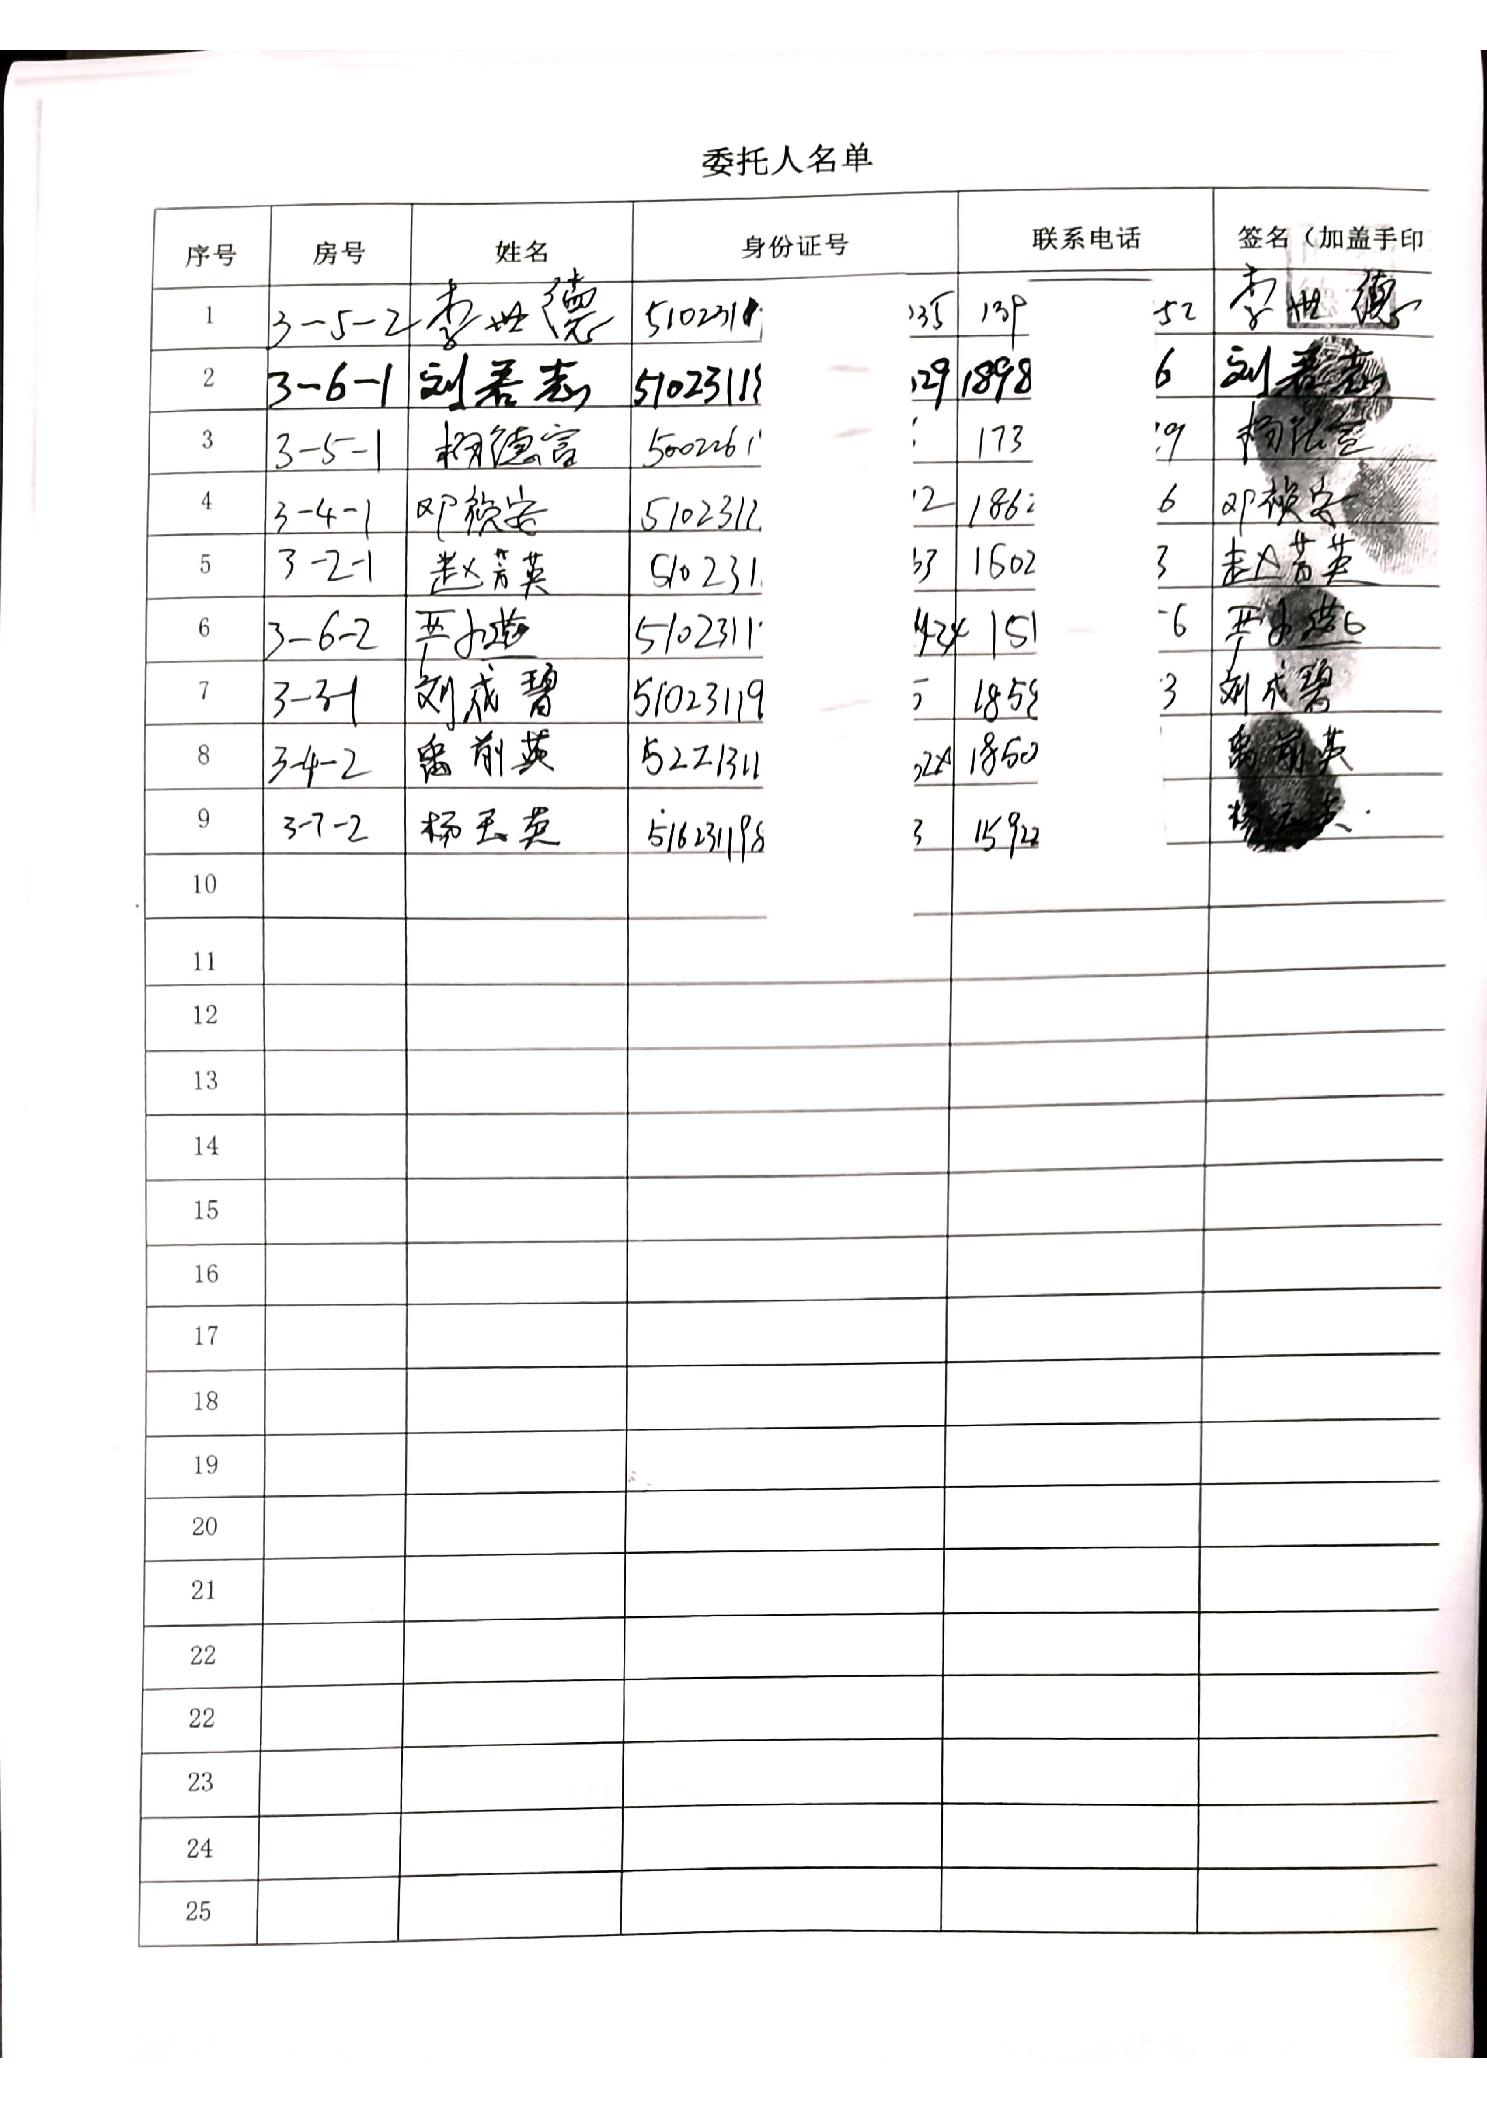 委托人名单
序号 房号 姓名 身份证号 联系电话 签名（加盖手印
1 3-5-2 李世德 5102318 135 139 52 李世德
2 3-6-1 刘若志 51023119 129 1898 6 刘若志
3 3-5-1 杨德富 5002261 173 9 杨德富
4 3-4-1 邓祯安 5102311 2 186 6 邓祯安
5 3-2-1 赵菁英 510231 33 1602 3 赵菁英
6 3-6-2 严小燕 5102311 424 151 6 严小燕
7 3-3-1 刘成碧 51023119 5 185 3 刘成碧
8 3-4-2 禹前英 5221311 1850 禹前英
9 3-7-2 杨玉英 516231198 3 15922 杨玉英
10
11
12
13
14
15
16
17
18
19
20
21
22
22
23
24
25